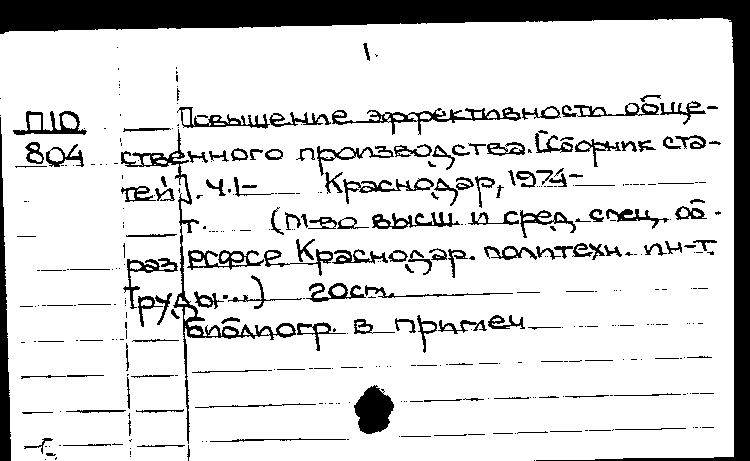 1.
П10 Повышение эффективности обще-
804 ственного производства. [Сборник ста-
тей]. Ч.1- Краснодар, 1974-
т. (М-во высш. и сред. спец. об-
раз. РСФСР. Краснодар. политехн. ин-т.
Труды...) 20см.
Библиогр. в примеч.